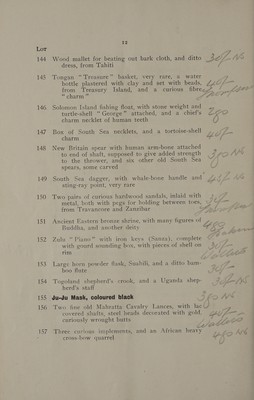 12
Lot
144 Wood mallet for beating out bark cloth, and ditto
dress, from Tahiti
145 Tongan "Treasure" basket, very rare, a water
bottle plastered with clay and set with beads,
from Treasury Island, and a curious fibre
"charm"
146 Solomon Island fishing float, with stone weight and
turtle-shell "George" attached, and a chief's
charm necklet of human teeth
147 Box of South Sea necklets, and a tortoise-shell
charm
148 New Britain spear with human arm-bone attached
to end of shaft, supposed to give added strength
to the thrower, and six other old South Sea
spears, some carved
149 South Sea dagger, with whale-bone handle and
sting-ray point, very rare
150 Two pairs of curious hardwood sandals, inlaid with
metal, both with pegs for holding between toes,
from Travancore and Zanzibar
151 Ancient Eastern bronze shrine, with many figures of
Buddha, and another deity
152 Zulu "Piano" with iron keys (Sanza), complete
with gourd sounding box, with pieces of shell on
rim
153 Large horn powder flask, Suahili, and a ditto bam-
boo flute
154 Togoland shepherd's crook, and a Uganda shep-
herd's staff
155 Ju-Ju Mask, coloured black
156 Two fine old Mahratta Cavalry Lances, with
covered shafts, steel heads decorated with gold,
curiously wrought butts
157 Three curious implements, and an African heavy
cross-bow quarrel